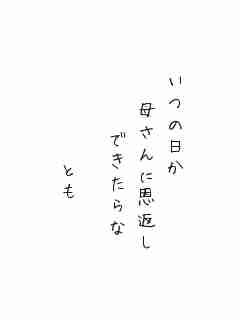 いつの日か
母さんに恩返し
できたらな
とも